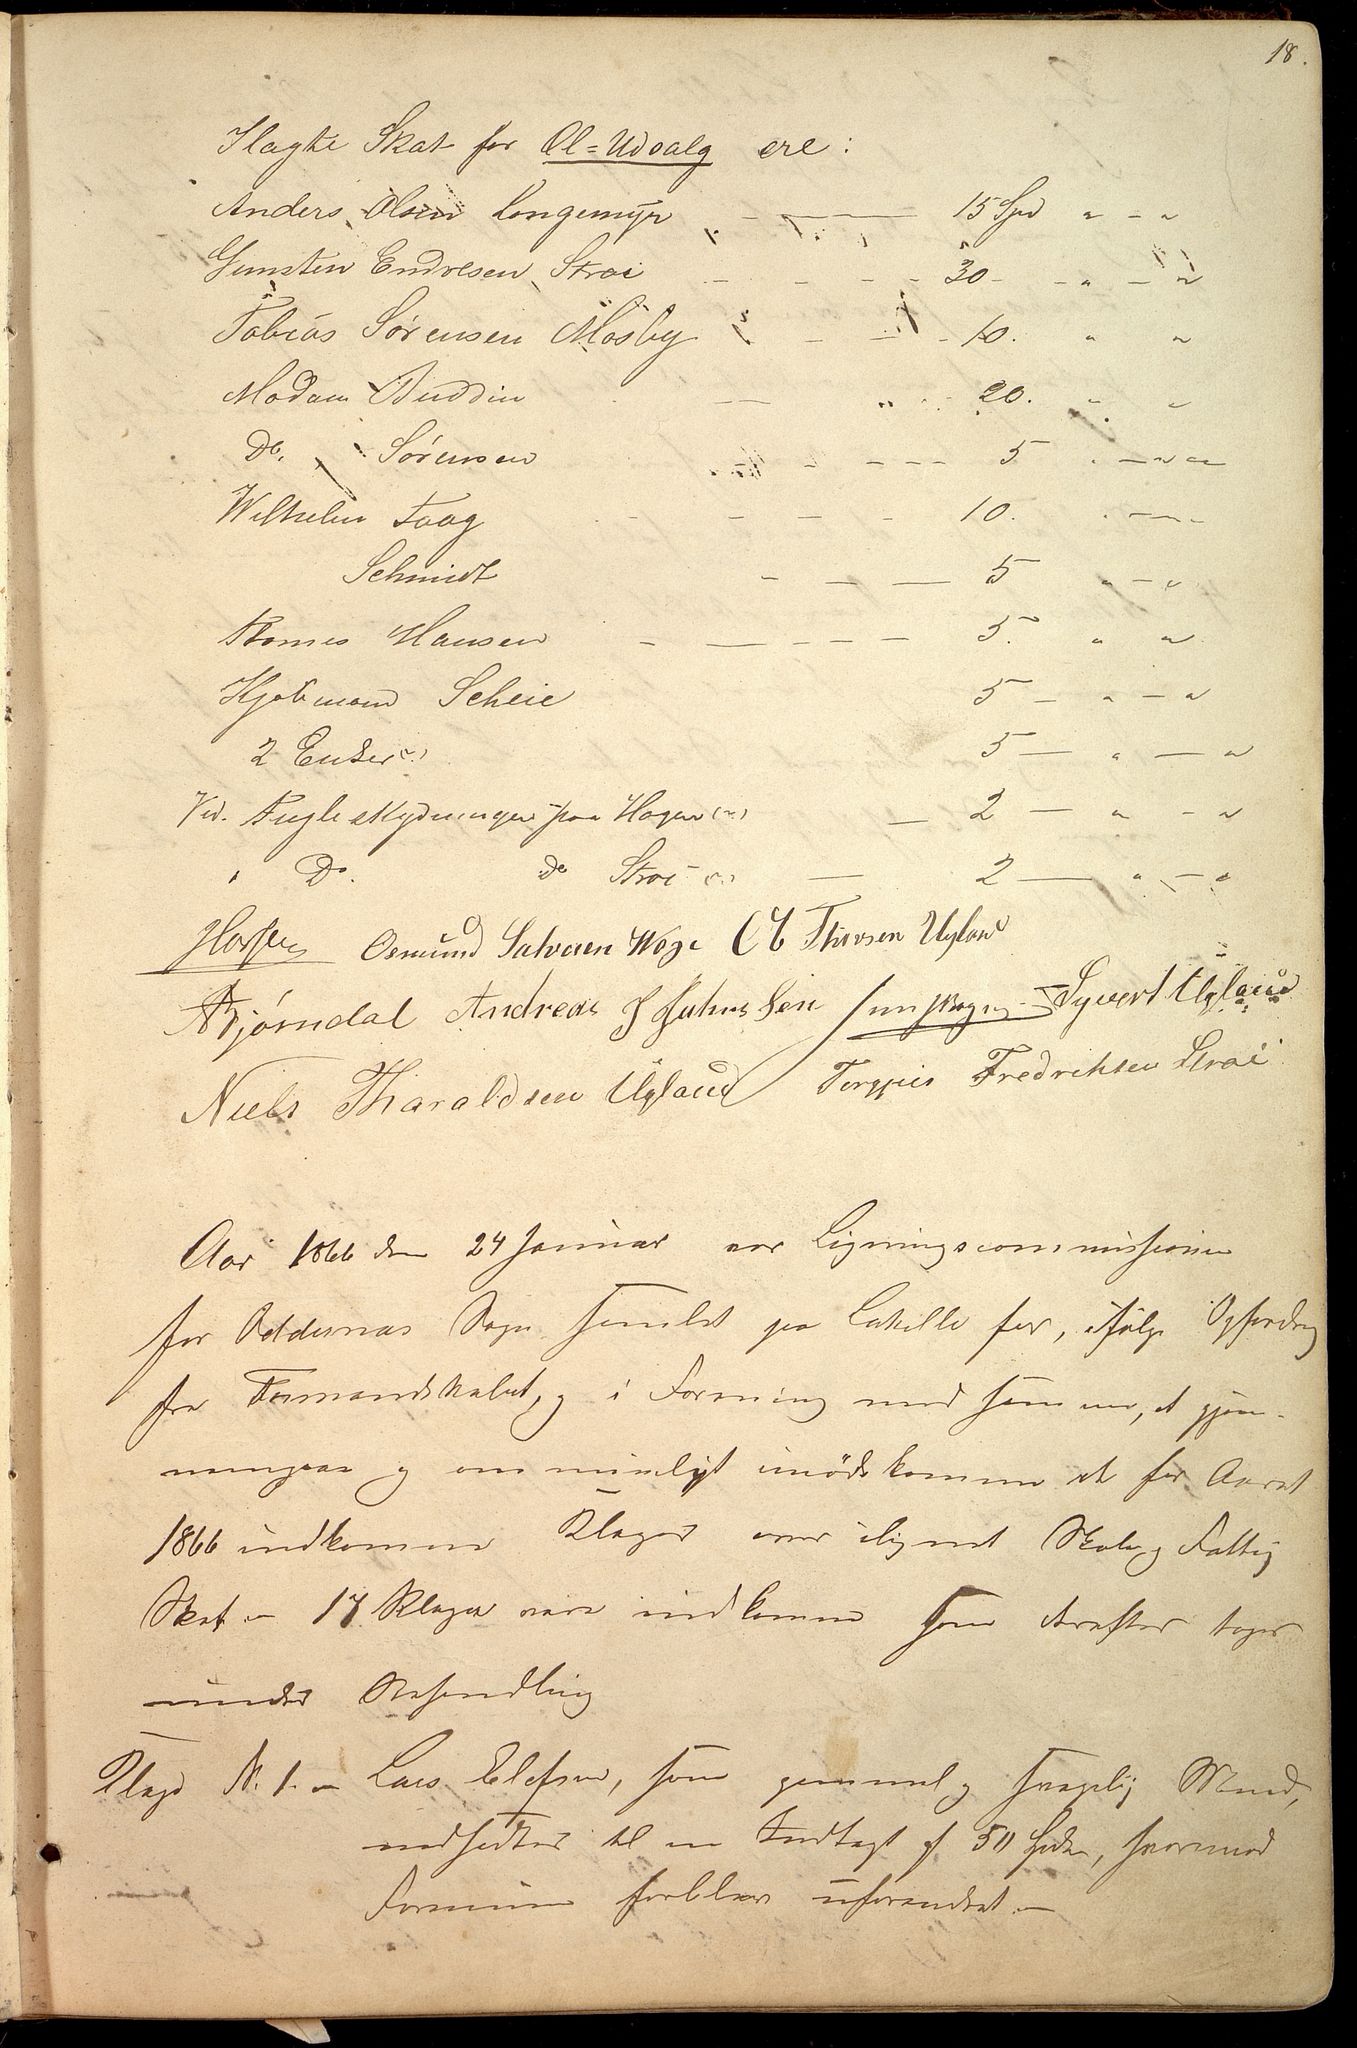 18.
Ilagte Skat for Øl=Udsalg ere:
Anders Olsen Longemyr — 15 Spd " - "
Gunsten Endresen Strai - - - - 30 - - " - "
Tobias Sørensen Mosby - - - 10. " "
Madam Buddin — " - 20. " "
Do. Sørensen - - - - - 5 " - " "
Wilhelm Faag - - - - 10. " - - -
Schmidt - - — 5 " - "
Thomes Hansen - — - - - - 5. " "
Kjøbmand Scheie 5 - " - "
2 Enker 5 — " — "
Ved. Fugleskydningen paa Hagen — 2 — " - "
" Do. do Strai — 2 — " - "
Osmund Salvesen Woge Thorsen Uglan
Bjørndal Andreas J Johnssen Syvert Uglaand
Niels Tharaldsen Uglaud Torgjus Fredriksen Strai
Aar 1866 den 24 Januar var Ligningscommissionen
for Oddernæs Sogn samlet paa for, ifølge Opfordring
fra Formandskabet, og i Forening med samme, at gjen-
nemgaa og om muligt imødekomme de for Aaret
1866 indkomne Klager over ilignet Skole og Fattig
Skat. - 17 Klager vare indkomne som derefter toges
under Behandling
Klage N. 1. - Lars Elefsen, som gammel og svagelig Mand,
nedsættes til en Indtægt af 50 Spdlr, hvormod
Formuen forbliver uforandret. -